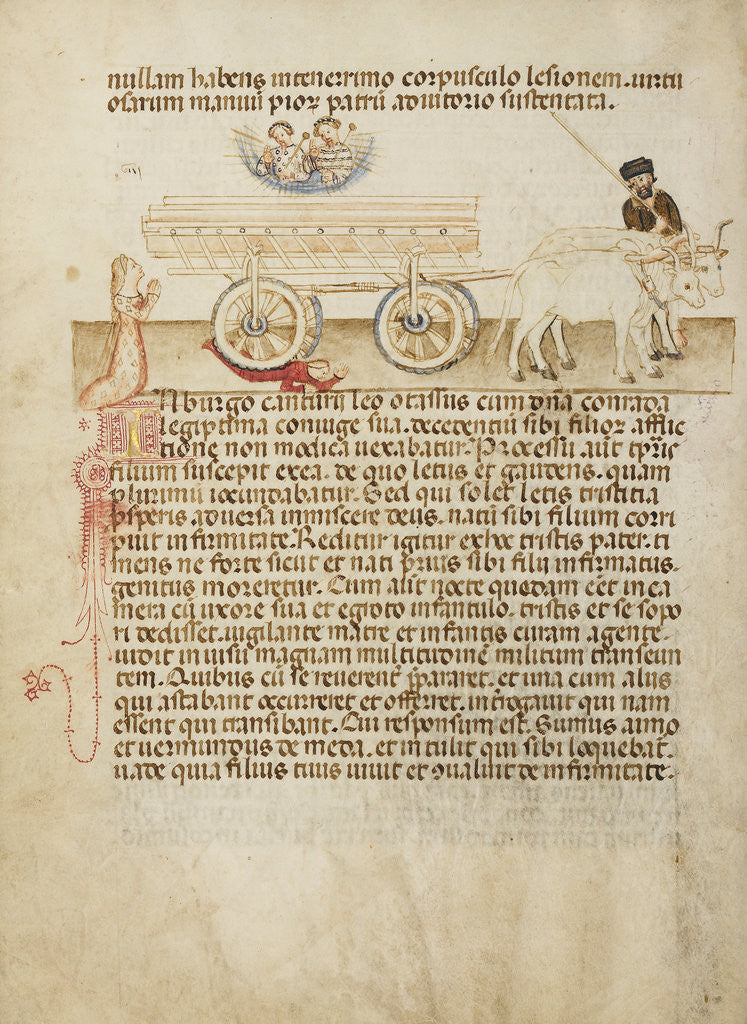 nullam habens in tenerrimo corpusculo lesionem. uirtu
osarum manuū pioꝝ patrū adiutorio sustentata.
IN burgo canturij leo otassus cum dn̄a conrada
legiptima coniuge sua. decedentiū sibi filioꝝ afflic
tione non modica uexabatur. Processu aūt tꝑis
filium suscepit ex ea. de quo letus et gaudens. quam
plurimū iocundabatur. Sed qui solet letis tristitia
ꝓsperis aduersa inmiscere deus. natū sibi filium corri
puit infirmitate. Redditur igitur ex hoc tristis pater. ti
mens ne forte sicut et nati prius sibi filij infirmatus.
genitus moreretur. Cum aūt nocte quadam eēt in ca
mera cū uxore sua et egroto infantulo. tristis et se sopo
ri dedisset. uigilante matre et infantis curam agente.
uidit in uisu magnam multitudinē militum transeun
tem. Quibus cū se reuerent p̄pararet. et una cum alijs
qui astabant occurreret et offerret. inťrogauit qui nam
essent qui transibant. Cui responsum est. Sumus aimo
et uermundus de meda. et intulit qui sibi loquebat᷑.
uade quia filius tuus uiuit et ꝯualuit de infirmitate.